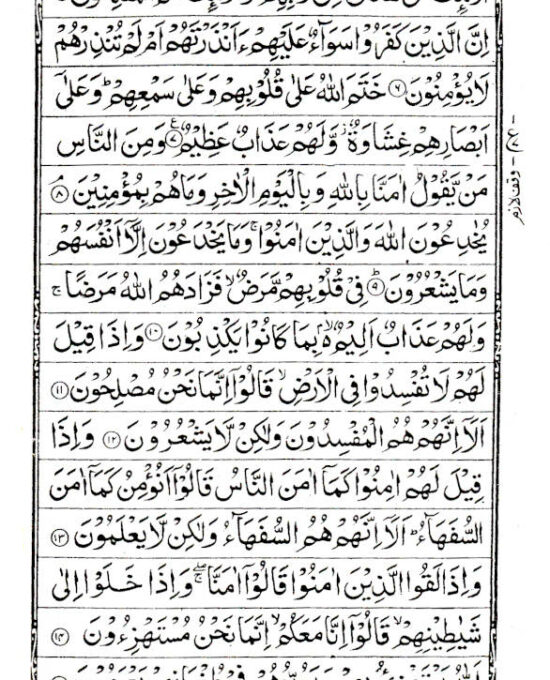 اِنَّ الَّذِيْنَ كَفَرُوْا سَوَآءٌ عَلَيْهِمْ ءَاَنْذَرْتَهُمْ اَمْ لَمْ تُنْذِرْهُمْ
لَا يُؤْمِنُوْنَ ۶ خَتَمَ اللّٰهُ عَلٰى قُلُوْبِهِمْ وَعَلٰى سَمْعِهِمْ ؕ وَعَلٰٓى
اَبْصَارِهِمْ غِشَاوَةٌ ؗ وَّلَهُمْ عَذَابٌ عَظِيْمٌ ۷ وَمِنَ النَّاسِ
مَنْ يَّقُوْلُ اٰمَنَّا بِاللّٰهِ وَبِالْيَوْمِ الْاٰخِرِ وَمَا هُمْ بِمُؤْمِنِيْنَ ۘ ۸
يُخٰدِعُوْنَ اللّٰهَ وَالَّذِيْنَ اٰمَنُوْا ۚ وَمَا يَخْدَعُوْنَ اِلَّآ اَنْفُسَهُمْ
وَمَا يَشْعُرُوْنَ ؕ ۹ فِيْ قُلُوْبِهِمْ مَّرَضٌ ۙ فَزَادَهُمُ اللّٰهُ مَرَضًا ۚ
وَلَهُمْ عَذَابٌ اَلِيْمٌۢ ۙ بِمَا كَانُوْا يَكْذِبُوْنَ ۱۰ وَاِذَا قِيْلَ
لَهُمْ لَا تُفْسِدُوْا فِي الْاَرْضِ ۙ قَالُوْٓا اِنَّمَا نَحْنُ مُصْلِحُوْنَ ۱۱
اَلَآ اِنَّهُمْ هُمُ الْمُفْسِدُوْنَ وَلٰكِنْ لَّا يَشْعُرُوْنَ ۱۲ وَاِذَا
قِيْلَ لَهُمْ اٰمِنُوْا كَمَآ اٰمَنَ النَّاسُ قَالُوْٓا اَنُؤْمِنُ كَمَآ اٰمَنَ
السُّفَهَآءُ ؕ اَلَآ اِنَّهُمْ هُمُ السُّفَهَآءُ وَلٰكِنْ لَّا يَعْلَمُوْنَ ۱۳
وَاِذَا لَقُوا الَّذِيْنَ اٰمَنُوْا قَالُوْٓا اٰمَنَّا ۖۚ وَاِذَا خَلَوْا اِلٰى
شَيٰطِيْنِهِمْ ۙ قَالُوْٓا اِنَّا مَعَكُمْ ۙ اِنَّمَا نَحْنُ مُسْتَهْزِءُوْنَ ۱۴
وقف لازم